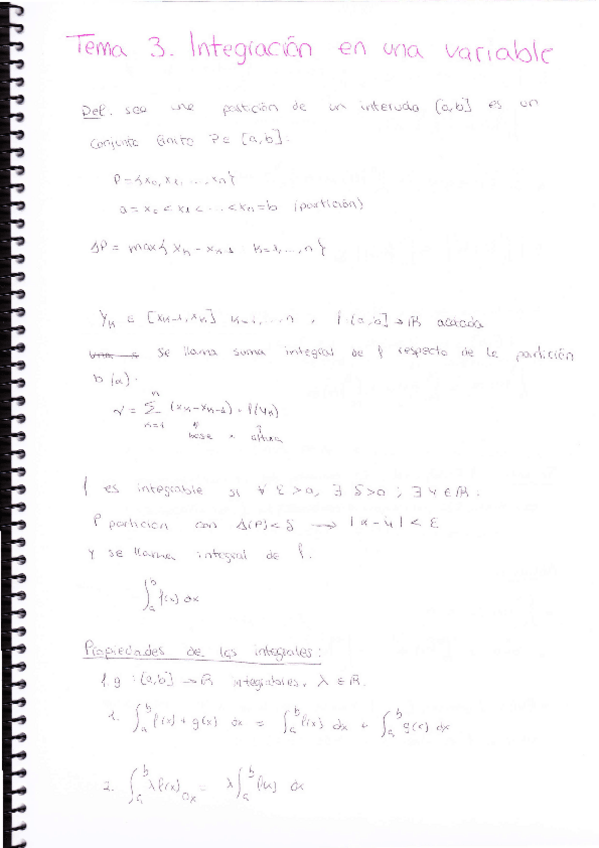 Tema 3. Integración en una variable
Def. sea una partición de un intervalo [a,b] es un
conjunto finito P∈ [a,b].
P={x₀, x₁, ..., xₙ}
a = x₀ < x₁ < ... < xₙ = b (partición)
ΔP = max{ xₖ - xₖ₋₁ k=1,...,n }
Yₖ ∈ [xₖ₋₁, xₖ] k=1,...,n , f:[a,b] → ℝ acotada
se llama suma integral de f respecto de la partición
= Σ (xₖ-xₖ₋₁) · f(yₖ)
n
k=1
base × altura
f es integrable si ∀ ε>0, ∃ δ>0 ; ∃ ∈ ℝ :
P partición con Δ(P)<δ → | | < ε
y se llama integral de f.
∫ₐᵇ f(x) dx
Propiedades de las integrales:
f, g : [a,b] → ℝ integrables, λ ∈ ℝ.
1. ∫ₐᵇ f(x) + g(x) dx = ∫ₐᵇ f(x) dx + ∫ₐᵇ g(x) dx
2. ∫ₐᵇ λf(x) dx = λ∫ₐᵇ f(x) dx